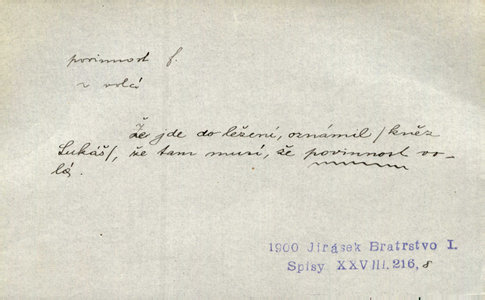 povinnost f.
~ volá
Že jde do ležení, oznámil /kněz
Lukáš/, že tam musí, že povinnost vo-
lá.
1900 Jirásek Bratrstvo I.
Spisy XXVIII. 216, 8